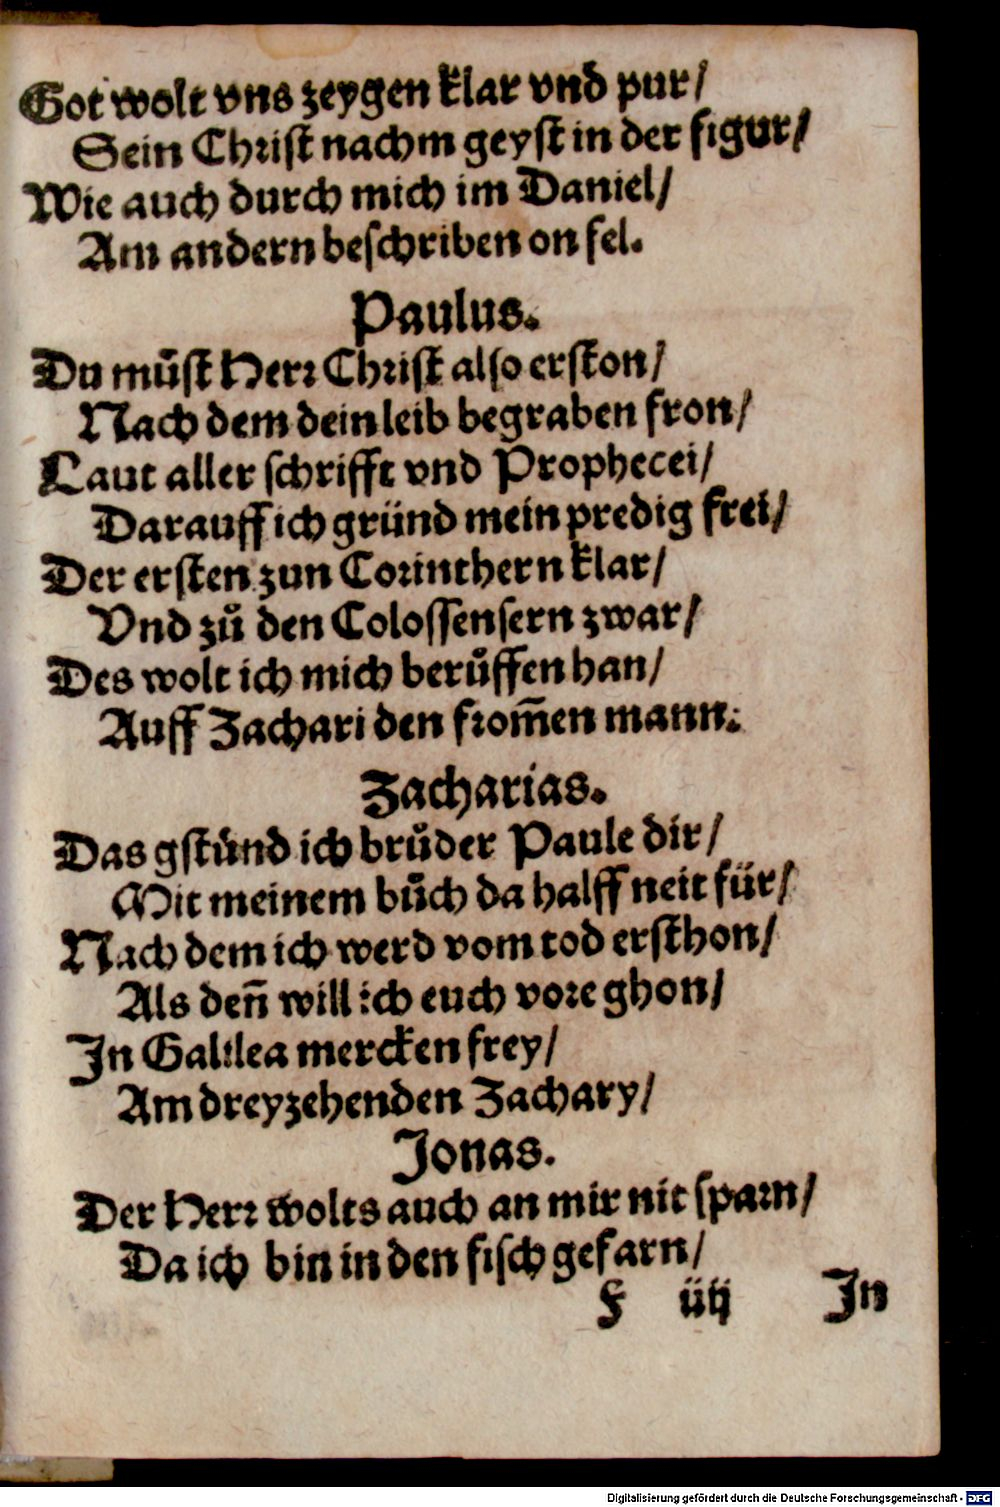 Got wolt vns zeygen klar vnd pur/
Sein Christ nachm geyst in der figur/
Wie auch durch mich im Daniel/
Am andern beschriben on fel.
Paulus.
Du můst Herr Christ also erston/
Nach dem dein leib begraben fron/
Laut aller schrifft vnd Prophecei/
Darauff ich gründ mein predig frei/
Der ersten zun Corinthern klar/
Vnd zů den Colossensern zwar/
Des wolt ich mich berůffen han/
Auff Zachari den from̃en mann.
Zacharias.
Das gstünd ich brůder Paule dir/
Mit meinem bůch da halff neit für/
Nach dem ich werd vom tod ersthon/
Als deñ will ich euch vore ghon/
In Galilea mercken frey/
Am dreyzehenden Zachary/
Jonas.
Der Herr wolts auch an mir nit sparn/
Da ich bin in den fisch gefarn/
F iiij In
Digitalisierung gefördert durch die Deutsche Forschungsgemeinschaft - DFG